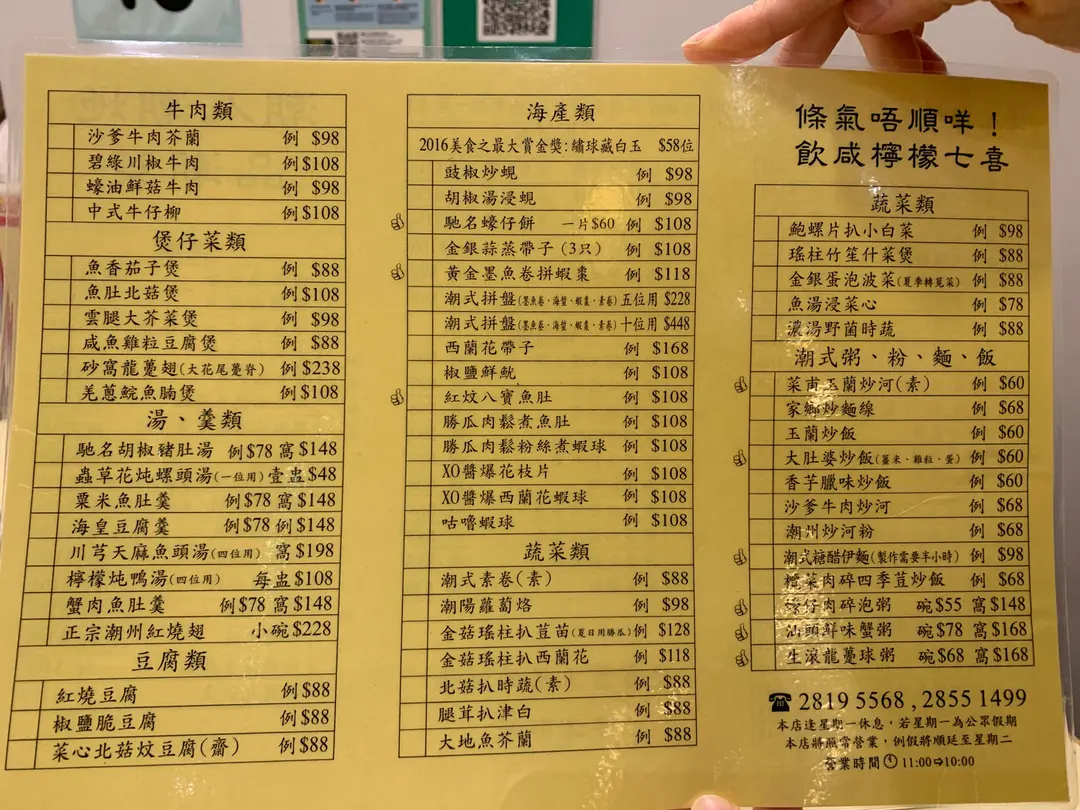 牛肉類
沙爹牛肉芥蘭 例 $98
碧綠川椒牛肉 例 $108
蠔油鮮菇牛肉 例 $98
中式牛仔柳 例 $108
煲仔菜類
魚香茄子煲 例 $88
魚肚北菇煲 例 $108
雲腿大芥菜煲 例 $98
咸魚雞粒豆腐煲 例 $88
砂窩龍躉翅(大花尾躉脊) 例 $238
羌蔥鯇魚腩煲 例 $108
湯、羹類
馳名胡椒豬肚湯 例$78 窩$148
蟲草花炖螺頭湯(一位用) 壹盅$48
粟米魚肚羹 例$78 窩$148
海皇豆腐羹 例$78 例$148
川芎天麻魚頭湯(四位用) 窩$198
檸檬炖鴨湯(四位用) 每盅$108
蟹肉魚肚羹 例$78 窩$148
正宗潮州紅燒翅 小碗$228
豆腐類
紅燒豆腐 例$88
椒鹽脆豆腐 例$88
菜心北菇炆豆腐(齋) 例$88
海產類
2016美食之最大賞金獎:繡球藏白玉 $58位
豉椒炒蜆 例 $98
胡椒湯浸蜆 例 $98
馳名蠔仔餅 一片$60 例 $108
金銀蒜蒸帶子(3只) 例 $108
黃金墨魚卷拼蝦棗 例 $118
潮式拼盤(墨魚卷、海蜇、蝦棗、素卷)五位用 $228
潮式拼盤(墨魚卷、海蜇、蝦棗、素卷)十位用 $448
西蘭花帶子 例 $168
椒鹽鮮魷 例 $108
紅炆八寶魚肚 例 $108
勝瓜肉鬆煮魚肚 例 $108
勝瓜肉鬆粉絲煮蝦球 例 $108
XO醬爆花枝片 例 $108
XO醬爆西蘭花蝦球 例 $108
咕嚕蝦球 例 $108
蔬菜類
潮式素卷(素) 例 $88
潮陽蘿蔔烙 例 $98
金菇瑤柱扒荳苗(夏日用勝瓜) 例 $128
金菇瑤柱扒西蘭花 例 $118
北菇扒時蔬(素) 例 $88
腿茸扒津白 例 $88
大地魚芥蘭 例 $88
條氣唔順咩!
飲咸檸檬七喜
蔬菜類
鮑螺片扒小白菜 例 $98
瑤柱竹笙什菜煲 例 $88
金銀蛋泡波菜(夏季轉莧菜) 例 $88
魚湯浸菜心 例 $78
濃湯野菌時蔬 例 $88
潮式粥、粉、麵、飯
菜甫玉蘭炒河(素) 例 $60
家鄉炒麵線 例 $68
玉蘭炒飯 例 $60
大肚婆炒飯(薑米、雞粒、蛋) 例 $60
香芋臘味炒飯 例 $60
沙爹牛肉炒河 例 $68
潮州炒河粉 例 $68
潮式糖醋伊麵(製作需要半小時) 例 $98
欖菜肉碎四季荳炒飯 例 $68
蠔仔肉碎泡粥 碗$55 窩$148
汕頭鮮味蟹粥 碗$78 窩$168
生滾龍躉球粥 碗$68 窩$168
☎ 2819 5568 , 2855 1499
本店逢星期一休息，若星期一為公眾假期
本店將照常營業，例假將順延至星期二
營業時間 11:00⇨10:00